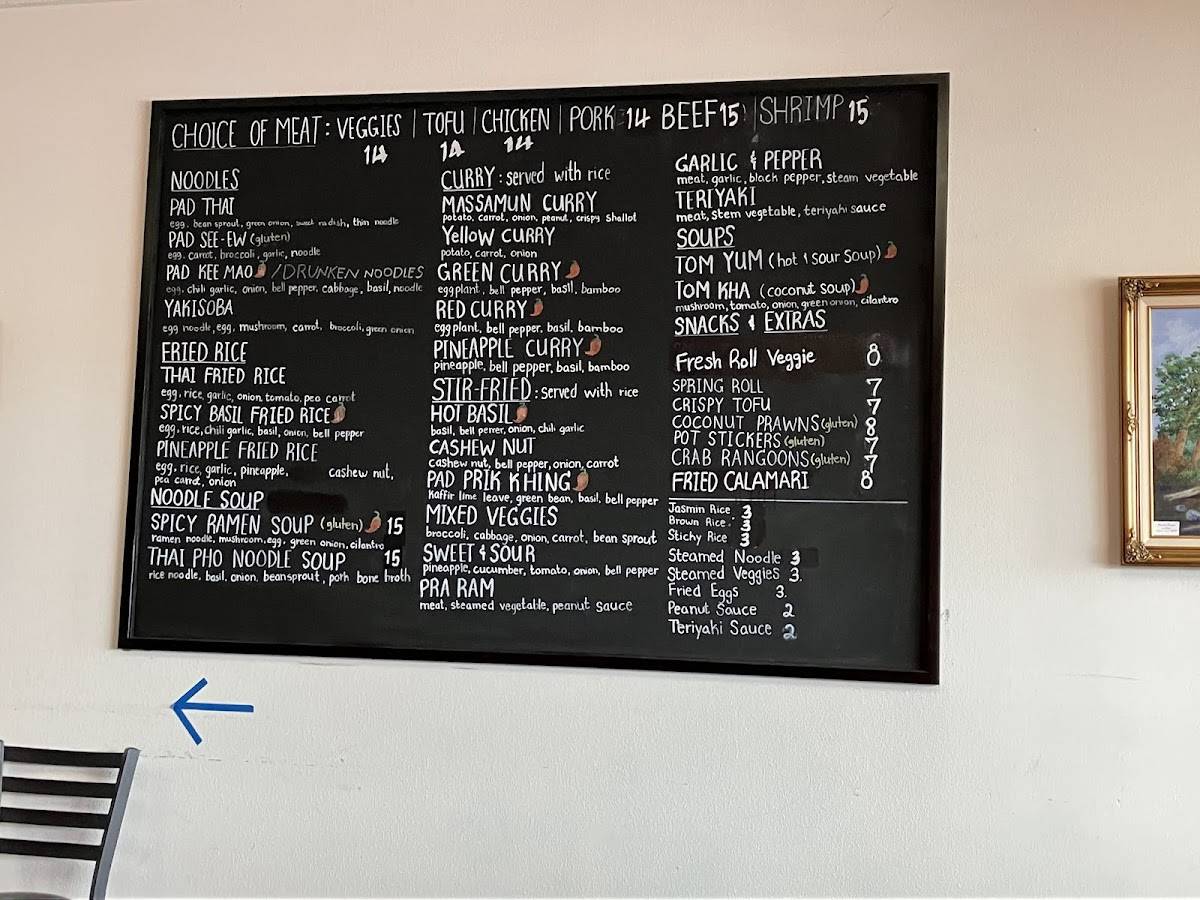 CHOICE OF MEAT: VEGGIES | TOFU | CHICKEN | PORK 14 BEEF 15 | SHRIMP 15
14 14 14
NOODLES
PAD THAI
egg, bean sprout, green onion, sweet radish, thin noodle
PAD SEE-EW (gluten)
egg, carrot, broccoli, garlic, noodle
PAD KEE MAO /DRUNKEN NOODLES
egg, chili garlic, onion, bell pepper, cabbage, basil, noodle
YAKISOBA
egg noodle, egg, mushroom, carrot, broccoli, green onion
FRIED RICE
THAI FRIED RICE
egg, rice, garlic, onion, tomato, pea carrot
SPICY BASIL FRIED RICE
egg, rice, chili garlic, basil, onion, bell pepper
PINEAPPLE FRIED RICE
egg, rice, garlic, pineapple, cashew nut,
pea carrot, onion
NOODLE SOUP
SPICY RAMEN SOUP (gluten) 15
ramen noodle, mushroom, egg, green onion, cilantro
THAI PHO NOODLE SOUP 15
rice noodle, basil, onion, beansprout, pork bone broth
CURRY: served with rice
MASSAMUN CURRY
potato, carrot, onion, peanut, crispy shallot
Yellow CURRY
potato, carrot, onion
GREEN CURRY
eggplant, bell pepper, basil, bamboo
RED CURRY
eggplant, bell pepper, basil, bamboo
PINEAPPLE CURRY
pineapple, bell pepper, basil, bamboo
STIR-FRIED: served with rice
HOT BASIL
basil, bell perrer, onion, chili garlic
CASHEW NUT
cashew nut, bell pepper, onion, carrot
PAD PRIK KHING
Kaffir lime leave, green bean, basil, bell pepper
MIXED VEGGIES
broccoli, cabbage, onion, carrot, bean sprout
SWEET & SOUR
pineapple, cucumber, tomato, onion, bell pepper
PRA RAM
meat, steamed vegetable, peanut sauce
GARLIC & PEPPER
meat, garlic, black pepper, steam vegetable
TERIYAKI
meat, stem vegetable, teriyahi sauce
SOUPS
TOM YUM (hot & sour soup)
TOM KHA (coconut soup)
mushroom, tomato, onion, green onion, cilantro
SNACKS & EXTRAS
Fresh Roll Veggie 8
SPRING ROLL 7
CRISPY TOFU 7
COCONUT PRAWNS (gluten) 8
POT STICKERS (gluten) 7
CRAB RANGOONS (gluten) 7
FRIED CALAMARI 8
Jasmin Rice 3
Brown Rice 3
Stichy Rice 3
Steamed Noodle 3
Steamed Veggies 3.
Fried Eggs 3.
Peanut Sauce 2
Teriyaki Sauce 2